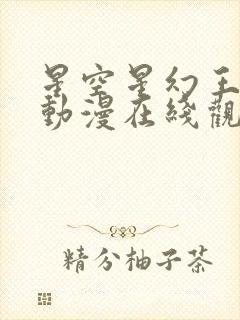 星空星幻王
動漫在綫觀
精分柚子茶